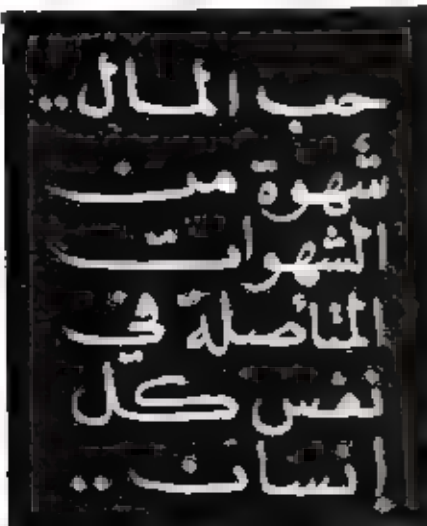 حب المال..
شهوة من
الشهوات
المتأصلة في
نفس كل
إنسان..